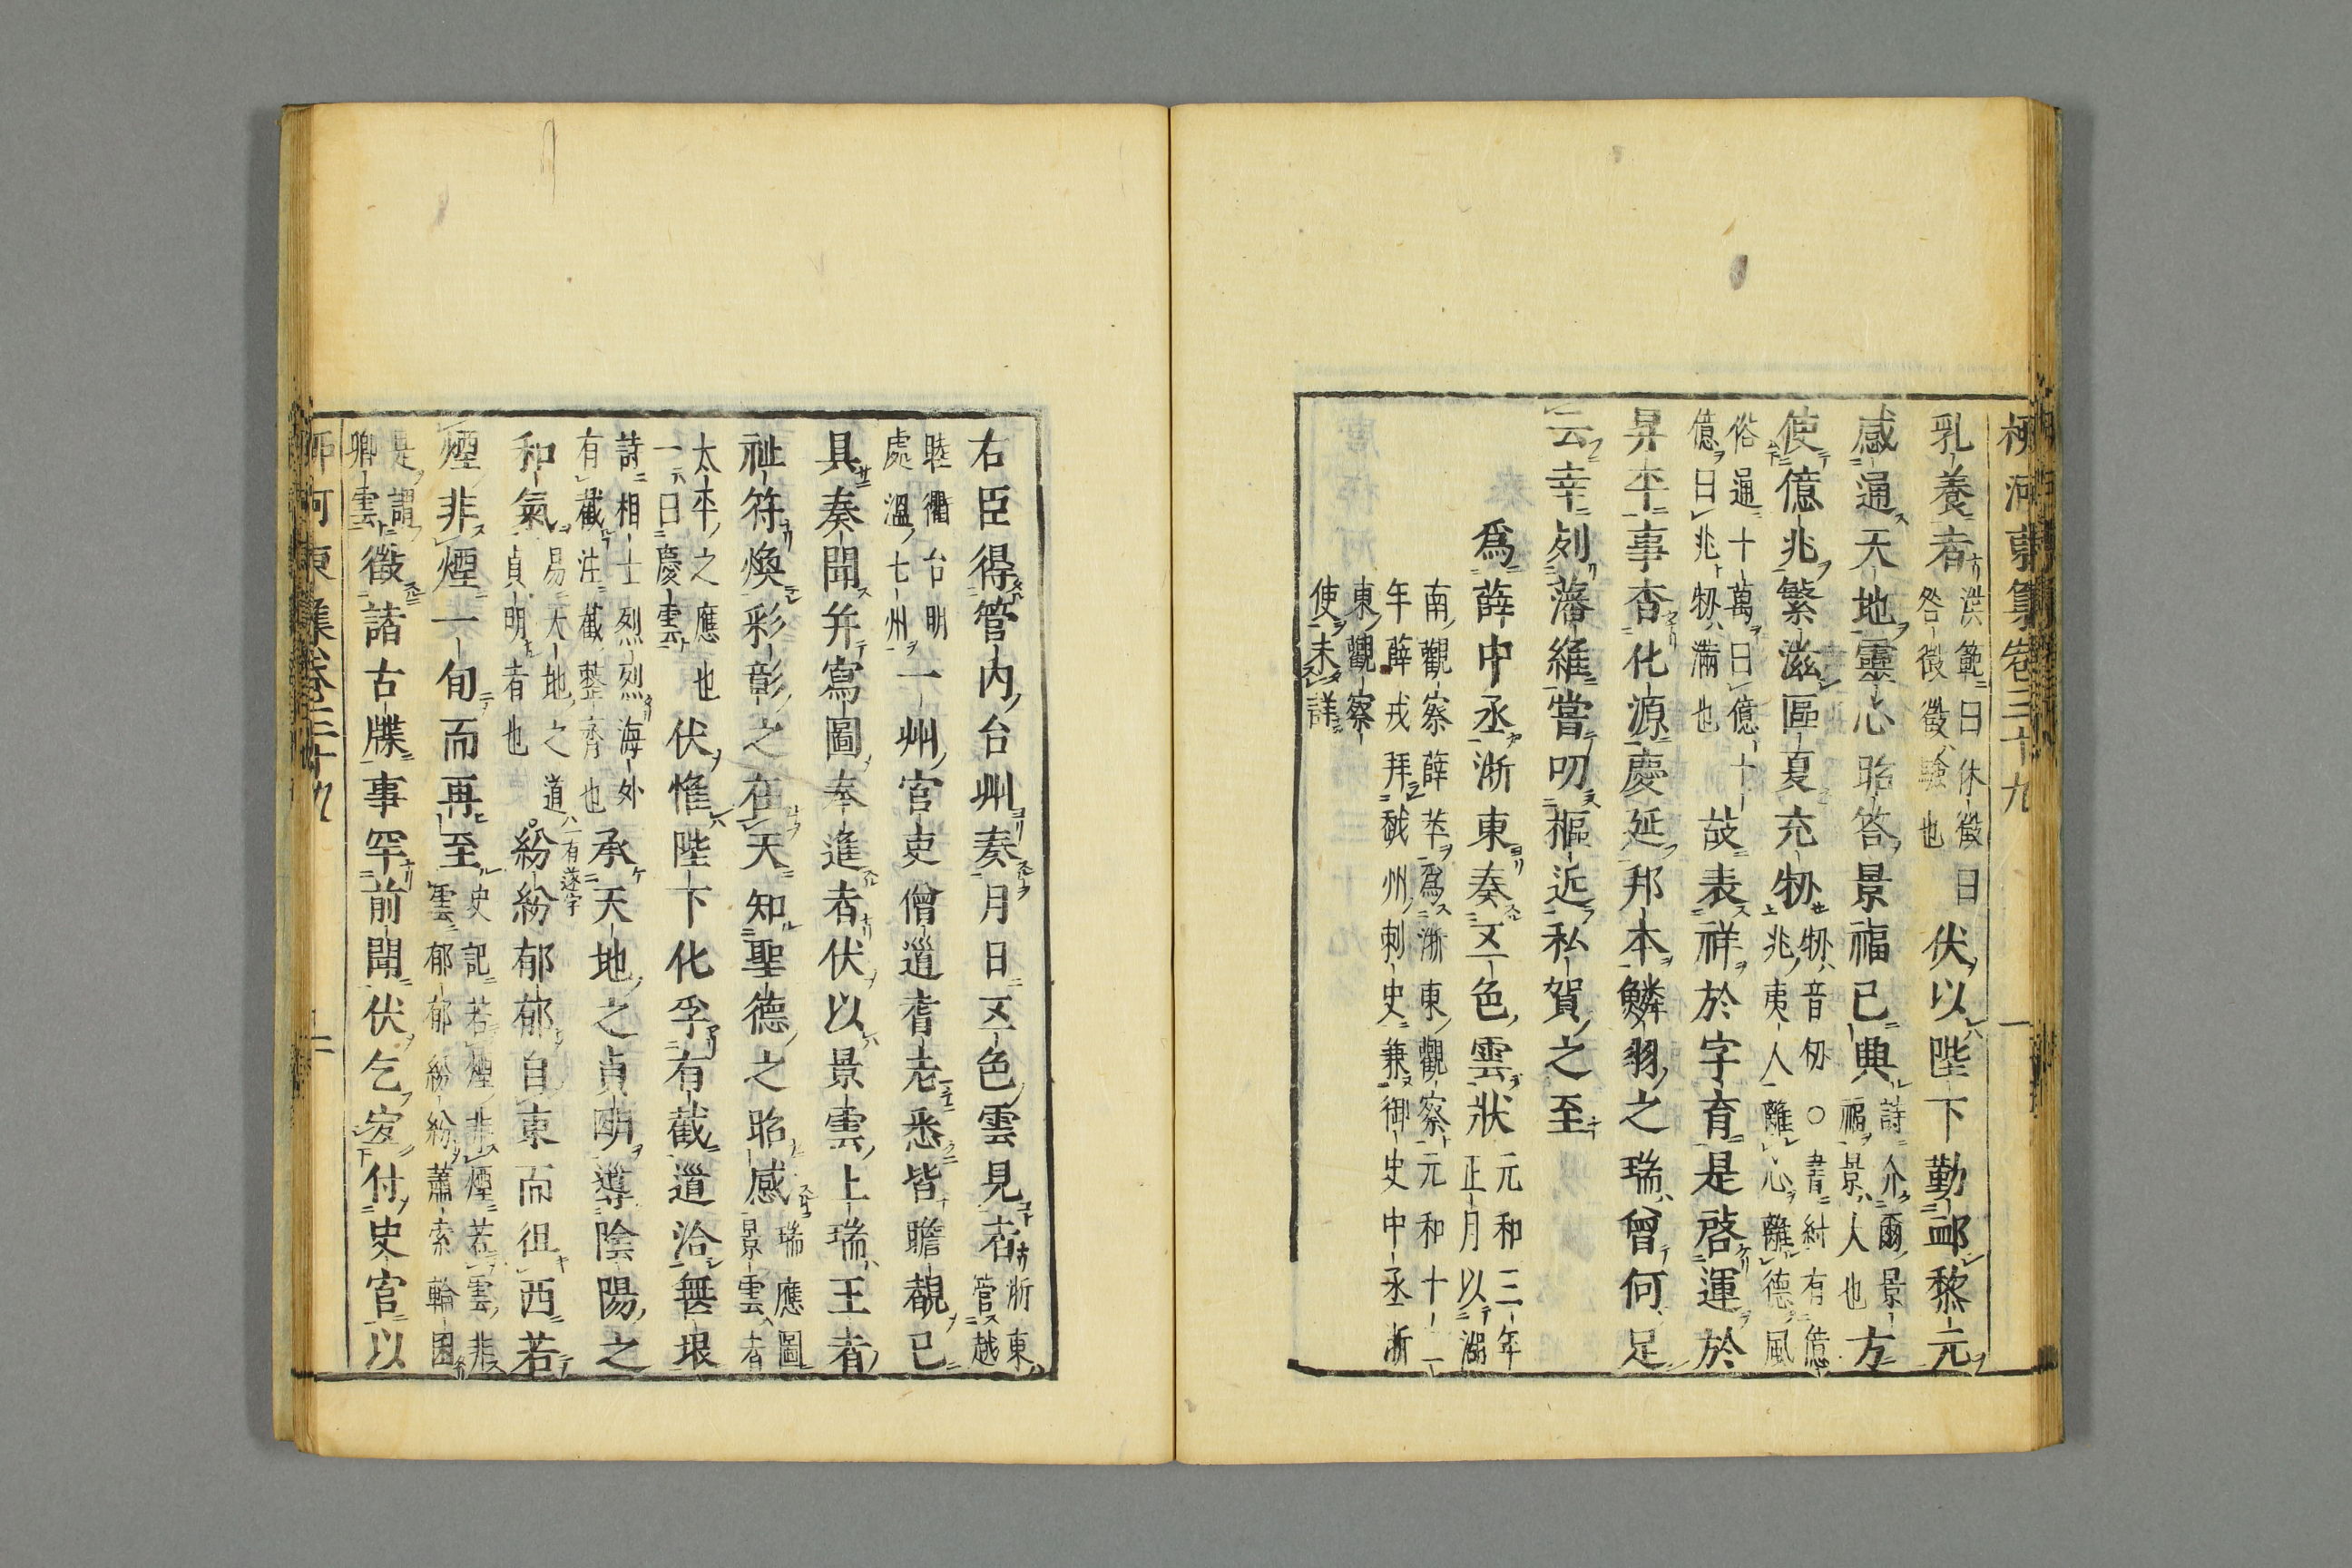 柳河東集卷三十九 一
乳養者洪範曰休徴曰咎徴徴驗也伏以陛下勤䘏黎元
感通天地靈心昭答景福已典詩介爾景福景人也方
使億兆繁滋區夏充牣牣音仞〇書紂有億兆夷人離心離德風
俗通十萬曰億十億曰兆牣滿也故表祥於字育是啓運於
昇平事杳化源慶延邦本鱗羽之瑞曾何足
云幸列藩維嘗叨樞近私賀之至
爲薛中丞浙東奏五色雲狀元和三年正月以湖
南觀察薛苹爲浙東觀察元和十一
年薛戎拜越州刺史兼御史中丞浙
東觀察
使未詳
右臣得管内台州奏月日五色雲見者浙東管越
睦衢台明處溫七州一州官吏僧道耆老悉皆瞻覩已
具奏聞并寫圖奉進者伏以景雲上瑞王者
祉符煥彩彰之在天知聖德之昭感瑞應圖景雲者
太平之應也一曰慶雲伏惟陛下化孚有截道洽無垠
詩相土烈烈海外有截注截整齊也承天地之貞明導陰陽之
和氣易天地之道貞明者也一有遂字紛紛郁郁自東而徂西若
煙非煙一旬而再至史記若煙非煙若雲非雲郁郁紛紛蕭索輪囷
是謂卿雲徵諸古牒事罕前聞伏乞宣付史官以
柳河東集卷三十九 二